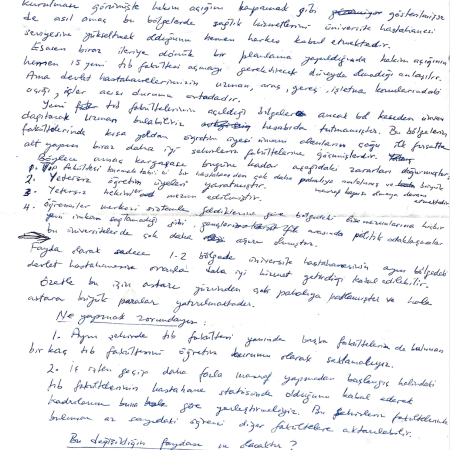 kurulması görünüşte hekim açığını kapamak gibi gösterilmişse
de asıl amaç bu bölgelerde sağlık hizmetlerini üniversite hastahanesi
seviyesine yükseltmek olduğunu hemen herkes kabul etmektedir.
Esasen biraz ileriye dönük bir planlama yapıldığında hekim açığının
hemen 15 yeni tıb fakültesi açmayı gerektirecek düzeyde olmadığı anlaşılır.
Ama devlet hastahanelerimizin uzman, araç, gereç, işletme konularındaki
açığı, işler acısı durumu ortadadır.
Yeni tıb fakültelerinin açıldığı bölgelere ancak bol keseden ünvan
dağıtarak uzman bulabiliriz hesabıda tutmamıştır. Bu bölgelerin
fakültelerinde kısa yoldan öğretim üyesi ünvanı alanların çoğu ilk fırsatta
alt yapısı biraz daha iyi şehirlerin fakültelerine göçmüşlerdir.
Böylece amaç kargaşası bugüne kadar aşağıdaki zararları doğurmuştur
1. Tıp fakültesi bir hastahaneden çok daha pahalıya
2. Yetersiz öğretim üyeleri yaratmıştır.
3. Yetersiz hekimler mezun edilmiştir.
4. Öğrenciler merkezi sistemle geldiklerine göre bölgedeki hiçbir
yeni imkan sağlamadığı gibi, arasında politik
bu üniversitelerde çok daha ağır olmuştur.
Fayda olarak sadece 1-2 bölgede üniversite hastahanesinin aynı bölgedeki
devlet hastahanesine oranla daha iyi hizmet getirdiği kabul edilebilir.
Özetle bu işin astarı yüzünden çok pahalıya patlamıştır ve hala
astara büyük paralar yatırılmaktadır.
Ne yapmak zorundayız:
1. Aynı şehirde tıb fakültesi yanında başka fakültelerin de bulunan
bir kaç tıb fakültesini öğretim kurumu olarak saklamalıyız.
2. İş işten geçip daha fazla masraf yapmadan başlangıç halindeki
tıb fakültelerinin hastahane statüsünde olduğunu kabul ederek
kadrolarını buna göre yerleştirmeliyiz. Bu fakültelerinde
bulunan az sayıdaki öğrenci diğer fakültelere aktarılabilir.
Bu değişikliğin faydası ne olacaktır?